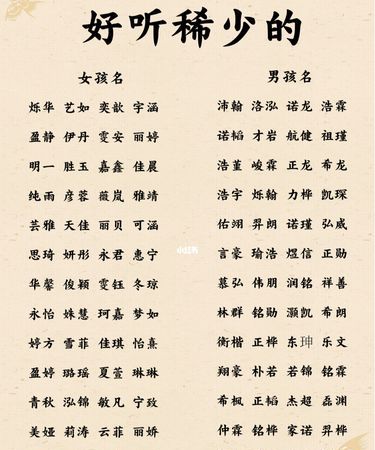 好听稀少的
女孩名 男孩名
烁华 艺如 奕歆 宇涵 沛翰 洛泓 诺龙 浩霖
盈静 伊丹 雯安 丽婷 诺韬 才岩 航健 祖瑾
明一 胜玉 嘉鑫 佳晨 浩堇 峻霖 正龙 希龙
纯雨 彦蓉 薇岚 雅靖 浩宇 烁翰 力桦 凯琛
芸雅 天佳 丽贝 可涵 佑翊 羿朗 诺瑾 弘威
思琦 妍彤 永君 惠宁 言豪 瑜浩 煜信 正勋
华馨 俊颖 雯钰 冬琼 慕弘 伟朋 润铭 祥善
永怡 姝慧 珂嘉 梦如 林群 铭勋 灏凯 希朗
婷方 雪菲 佳琪 怡熹 衡楷 正桦 东珅 乐文
盈婷 璐瑶 夏萱 琳琳 翔豪 朴若 若锦 铭霖
青秋 泓锦 敏凡 宁致 希枫 正韬 杰超 磊渊
美娅 莉涛 云菲 丽娇 仲霖 铭桦 家诺 羿桦
小红书